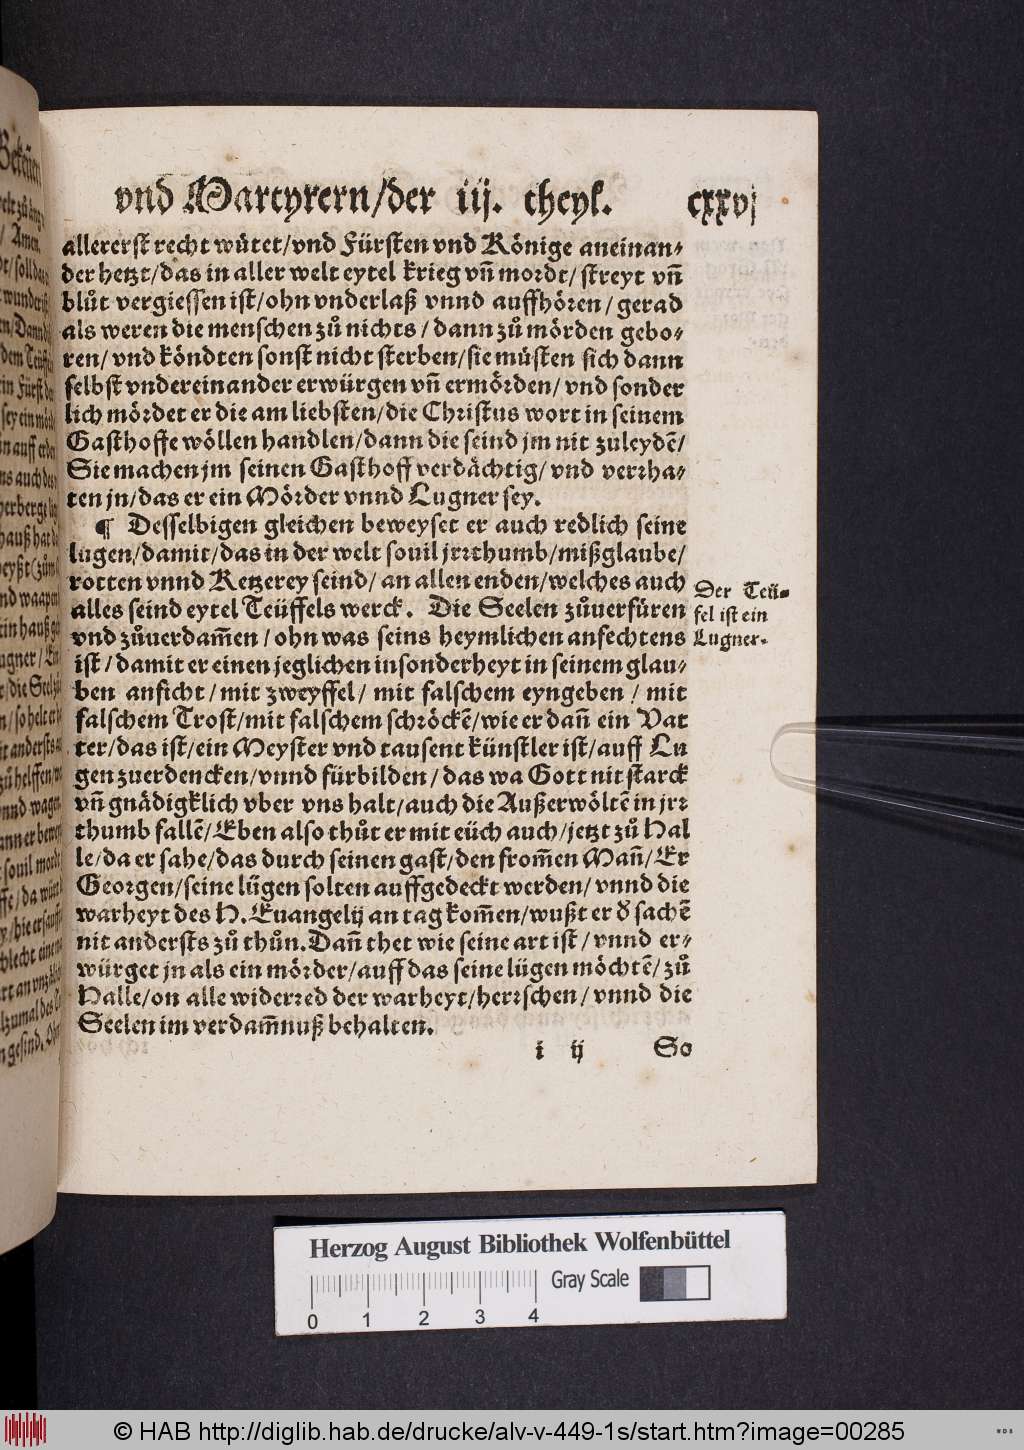 vnd Martyrern/der iij. theyl. cxxvj
allererst recht wůtet/vnd Fürsten vnd Könige aneinan⸗
der hetzt/das in aller welt eytel krieg vñ mordt/streyt vñ
blůt vergiessen ist/ohn vnderlaß vnnd auffhören/gerad
als weren die menschen zů nichts/dann zů mörden gebo⸗
ren/vnd köndten sonst nicht sterben/sie můsten sich dann
selbst vndereinander erwürgen vñ ermörden/vnd sonder
lich mördet er die am liebsten/die Christus wort in seinem
Gasthoffe wöllen handlen/dann die seind jm nit zuleydē/
Sie machen jm seinen Gasthoff verdächtig/vnd verrha⸗
ten jn/das er ein Mörder vnnd Lugner sey.
¶ Desselbigen gleichen beweyset er auch redlich seine
lügen/damit/das in der welt souil jrrthumb/mißglaube/
rotten vnnd Ketzerey seind/an allen enden/welches auch
alles seind eytel Teüffels werck. Die Seelen zůuerfüren
vnd zůuerdam̃en/ohn was seins heymlichen anfechtens
ist/damit er einen jeglichen insonderheyt in seinem glau⸗
ben anficht/mit zweyffel/mit falschem eyngeben/mit
falschem Trost/mit falschem schröckē/wie er dañ ein Vat
ter/das ist/ein Meyster vnd tausent künstler ist/auff Lu
gen zuerdencken/vnnd fürbilden/das wa Gott nit starck
vñ gnädigklich vber vns halt/auch die Außerwöltē in jrr
thumb fallē/Eben also thůt er mit eüch auch/jetzt zů Hal
le/da er sahe/das durch seinen gast/den from̃en Mañ/Er
Georgen/seine lügen solten auffgedeckt werden/vnnd die
warheyt des H. Euangelij an tag kom̃en/wußt er d̕ sachē
nit anderſts zů thůn. Dañ thet wie seine art ist/vnnd er⸗
würget jn als ein mörder/auff das seine lügen möchtē/zů
Halle/on alle widerred der warheyt/herrschen/vnnd die
Seelen im verdam̃nuß behalten.
i ij So
Der Teü⸗
fel ist ein
Lugner.
Herzog August Bibliothek Wolfenbüttel
Gray Scale
0 1 2 3 4
© HAB http://diglib.hab.de/drucke/alv-v-449-1s/start.htm?image=00285